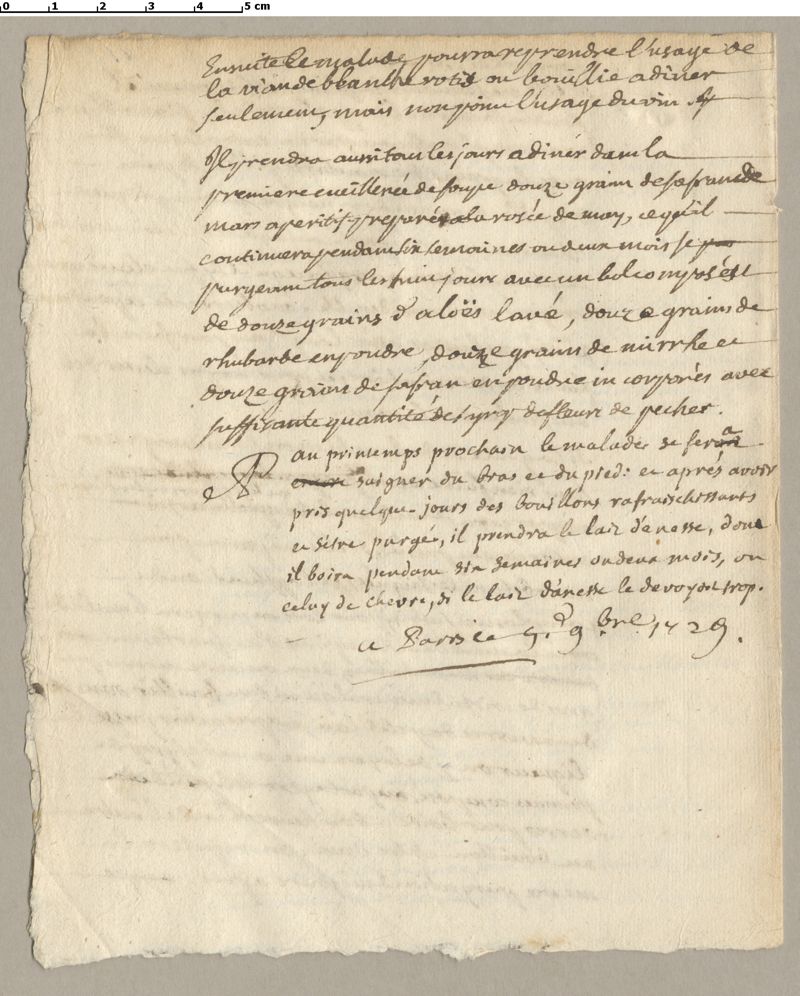 0 1 2 3 4 5 cm
Ensuite le malade pourra reprendre l'usage de
la viande blanche rotie ou bouillie a diner
seulement, mais non point l'usage du vin
Il prendra aussi tous les jours a diner dans la
premiere cueillerée de soupe douze grains de safran de
mars aperitif preparé a la rosée de may, ce qu'il
continuera pendant six semaines ou deux mois se
purgeant tous les huit jours avec un bol composé
de douze grains d'aloës lavé, douze grains de
rhubarbe en poudre, douze grains de mirrhe et
douze grains de safran en poudre incorporés avec
suffisante quantité de syrop de fleurs de pecher.
au printemps prochain le malade se fera
saigner du bras et du pied: et aprés avoir
pris quelque jours des bouillons rafraischissants
et s'etre purgé, il prendra le lait d'anesse, dont
il boira pendant six semaines ou deux mois, ou
celuy de chevre, si le lait d'anesse le devoyoit trop.
a Paris ce 9bre 1729.